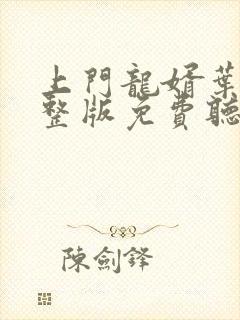 上門龍婿葉
整版免費聽
陳劍鋒